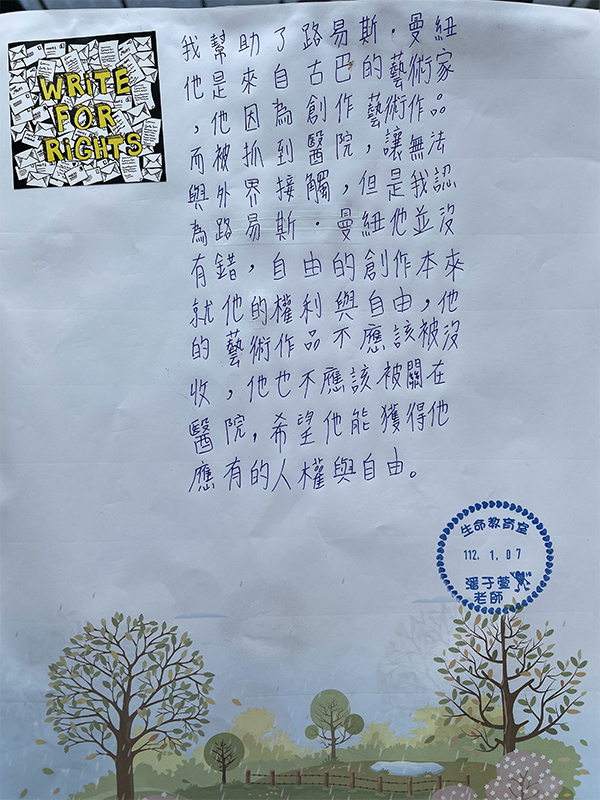 WRITE
FOR
RIGHTS
我幫助了路易斯．曼紐
他是來自古巴的藝術家
，他因為創作藝術作品
而被抓到醫院，讓無法
與外界接觸，但是我認
為路易斯．曼紐他並沒
有錯，自由的創作本來
就他的權利與自由，他
的藝術作品不應該被沒
收，他也不應該被關在
醫院，希望他能獲得他
應有的人權與自由。
生命教育室
112. 1. 07
潘于萱
老師